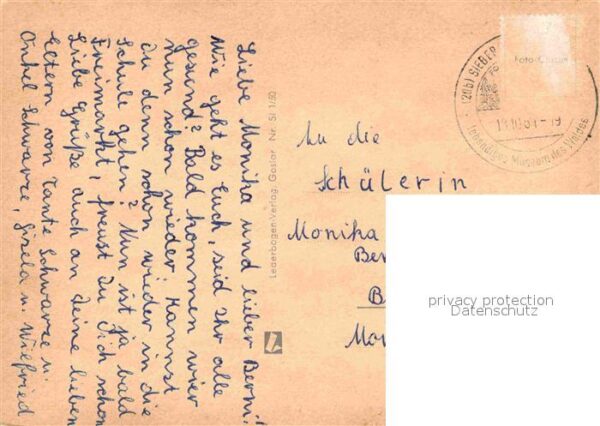 Liebe Monika und lieber Berni!
Wie geht es Euch, seid Ihr alle
gesund? Bald kommen wir
nun schon wieder. Kannst
du denn schon wieder in die
Schule gehen? Nun ist ja bald
Freimarkt, freust Du Dich schon
Liebe Grüße auch an Deine lieben
Eltern von Tante Schwarze u.
Onkel Schwarze, Gisela u. Wilfried
Lederbogen-Verlag, Goslar Nr. SI 1/50
(20b) SIEBER
13.10.61-19
Lebendiges Museum des Waldes
An die
Schülerin
Monika
Ber
B
Mo
privacy protection
Datenschutz